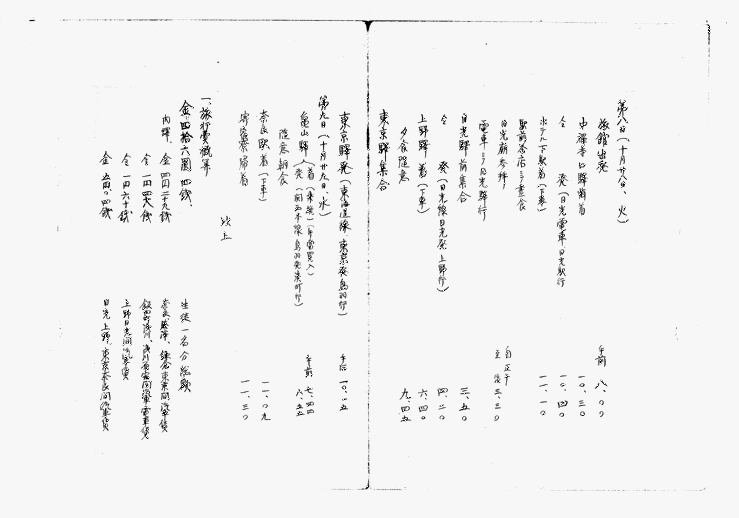 第八日（十月廿八日、火）
旅館出発 午前 八、〇〇
中禅寺口駅前着 一〇、三〇
仝 発（日光電車、日光駅行 一〇、四〇
ホテル下駅着（下車） 一一、一〇
駅前茶店ニテ昼食
日光廟参拝 自 正午 至 后 三、三〇
電車ニテ日光駅行
日光駅前集合 三、五〇
仝 発（日光線日光発上野行） 四、二〇
上野駅着（下車） 六、四〇
夕食随意
東京駅集合 九、四五
東京駅発（東海道線、東京発鳥羽行） 午后 一〇、一五
第九日（十月廿九日、水）
亀山駅 着（乗換）（弁当買入） 午前 七、四四
発（関西本線鳥羽発湊町行） 七、五五
随意朝食
奈良駅着（下車） 一一、〇九
寄宿寮帰着 一一、三〇
以上
一、旅行費概算
金、四拾六圓四銭、 生徒一名分総額
内譯、金 四円二十九銭 奈良、藤沢、鎌倉東京間汽車賃
金 一円四六銭
金 一円六十銭 上野日光間汽車賃
金 五円〇四銭 日光上野、東京奈良間汽車賃